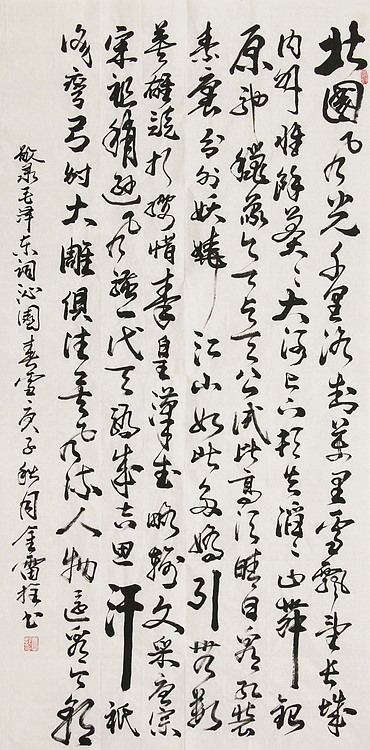 北國风光千里冰封萬里雪飄望長城
内外惟餘莽莽大河上下顿失滔滔山舞銀
原馳蠟象欲与天公试比高须晴日看红装
素裹分外妖娆江山如此多嬌引無數
英雄競折腰惜秦皇漢武略輸文采唐宗
宋祖稍遜风骚一代天骄成吉思汗祇
識彎弓射大雕俱往矣风流人物還看今朝
敬录毛泽东词沁園春雪庚子秋月金雷书